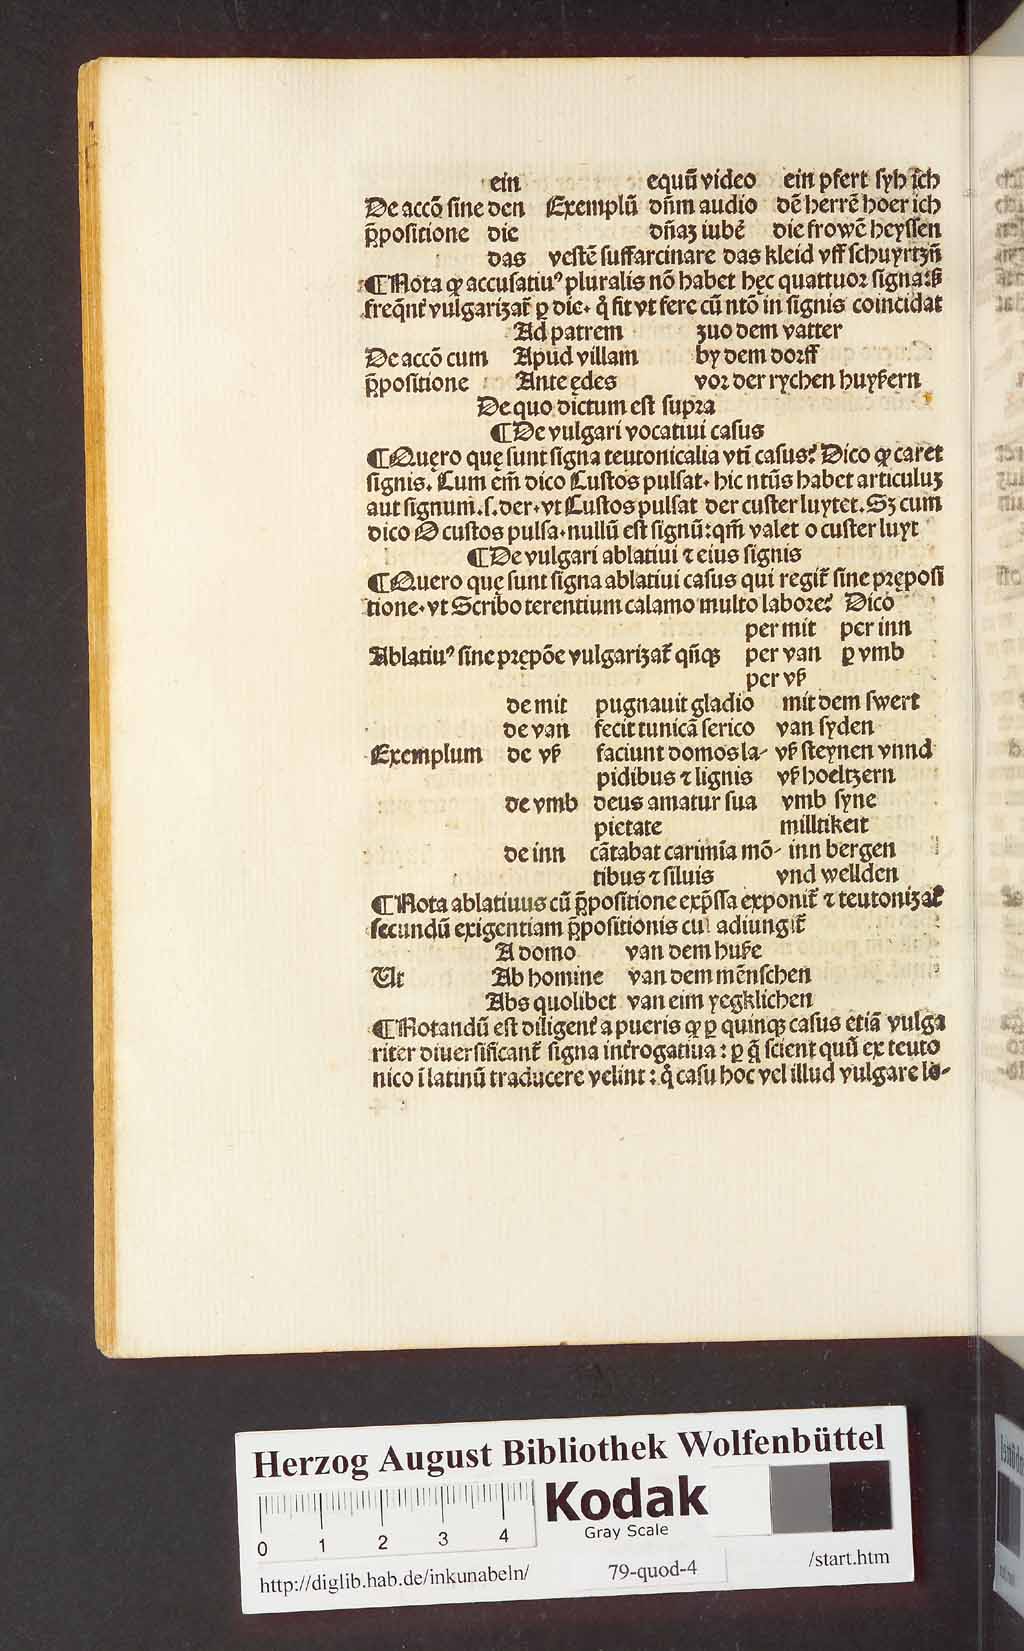 ein equū video ein pfert ſyh ich
De accō ſine den Exemplū dn̄m audio dē herrē hoer ich
p̄poſitione die dn̄aʒ iubē die frowē heyſſen
das veſtē ſuffarcinare das kleid vff ſchuyrtzn̄
¶ Nota ꝙ accuſatiuꝰ pluralis nō habet hęc quattuor ſigna: ſʒ
freq̄nt᷑ vulgarizat᷑ ꝑ die. q̊ fit vt fere cū ntō in ſignis coincidat
Ad patrem zuo dem vatter
De accō cum Apud villam by dem dorff
p̄poſitione Ante ędes vor der rychen huyſern
De quo dictum eſt ſupra
¶ De vulgari vocatiui caſus
¶ Quęro quę ſunt ſigna teutonicalia vti caſus? Dico ꝙ caret
ſignis. Cum em̄ dico Cuſtos pulſat. hic ntūs habet articuluʒ
aut ſignum. ſ. der. vt Cuſtos pulſat der cuſter luytet. Sʒ cum
dico O cuſtos pulſa. nullū eſt ſignū: qm̄ valet o cuſter luyt
¶ De vulgari ablatiui ⁊ eius ſignis
¶ Quero quę ſunt ſigna ablatiui caſus qui regit᷑ ſine prępoſi
tione. vt Scribo terentium calamo multo labore? Dico
per mit per inn
Ablatiuꝰ ſine prępōe vulgarizat᷑ qn̄qʒ per van ꝑ vmb
per vß
de mit pugnauit gladio mit dem ſwert
de van fecit tunicā ſerico van ſyden
Exemplum de vß faciunt domos la- vß ſteynen vnnd
pidibus ⁊ lignis vß hoeltzern
de vmb deus amatur ſua vmb ſyne
pietate milltikeit
de inn cātabat carimīa mō- inn bergen
tibus ⁊ ſiluis vnd wellden
¶ Nota ablatiuus cū p̄poſitione exp̄ſſa exponit᷑ ⁊ teutonizat᷑
ſecundū exigentiam p̄poſitionis cui adiungit᷑
A domo van dem huße
Ut Ab homine van dem mēnſchen
Abs quolibet van eim yegklichen
¶ Notandū eſt diligent᷑ a pueris ꝙ ꝑ quinqʒ caſus etiā vulga
riter diuerſificant᷑ ſigna int᷑rogatiua: ꝑ q̄ ſcient quū ex teuto
nico ī latinū traducere velint: q̊ caſu hoc vel illud vulgare lo-
Herzog August Bibliothek Wolfenbüttel
Kodak
Gray Scale
0 1 2 3 4
http://diglib.hab.de/inkunabeln/ 79-quod-4 /start.htm